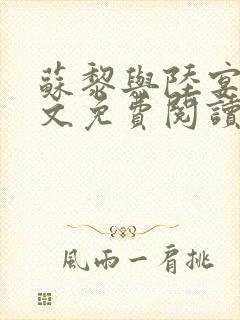 蘇黎與陸宴
文免費閱讀
風雨一肩挑